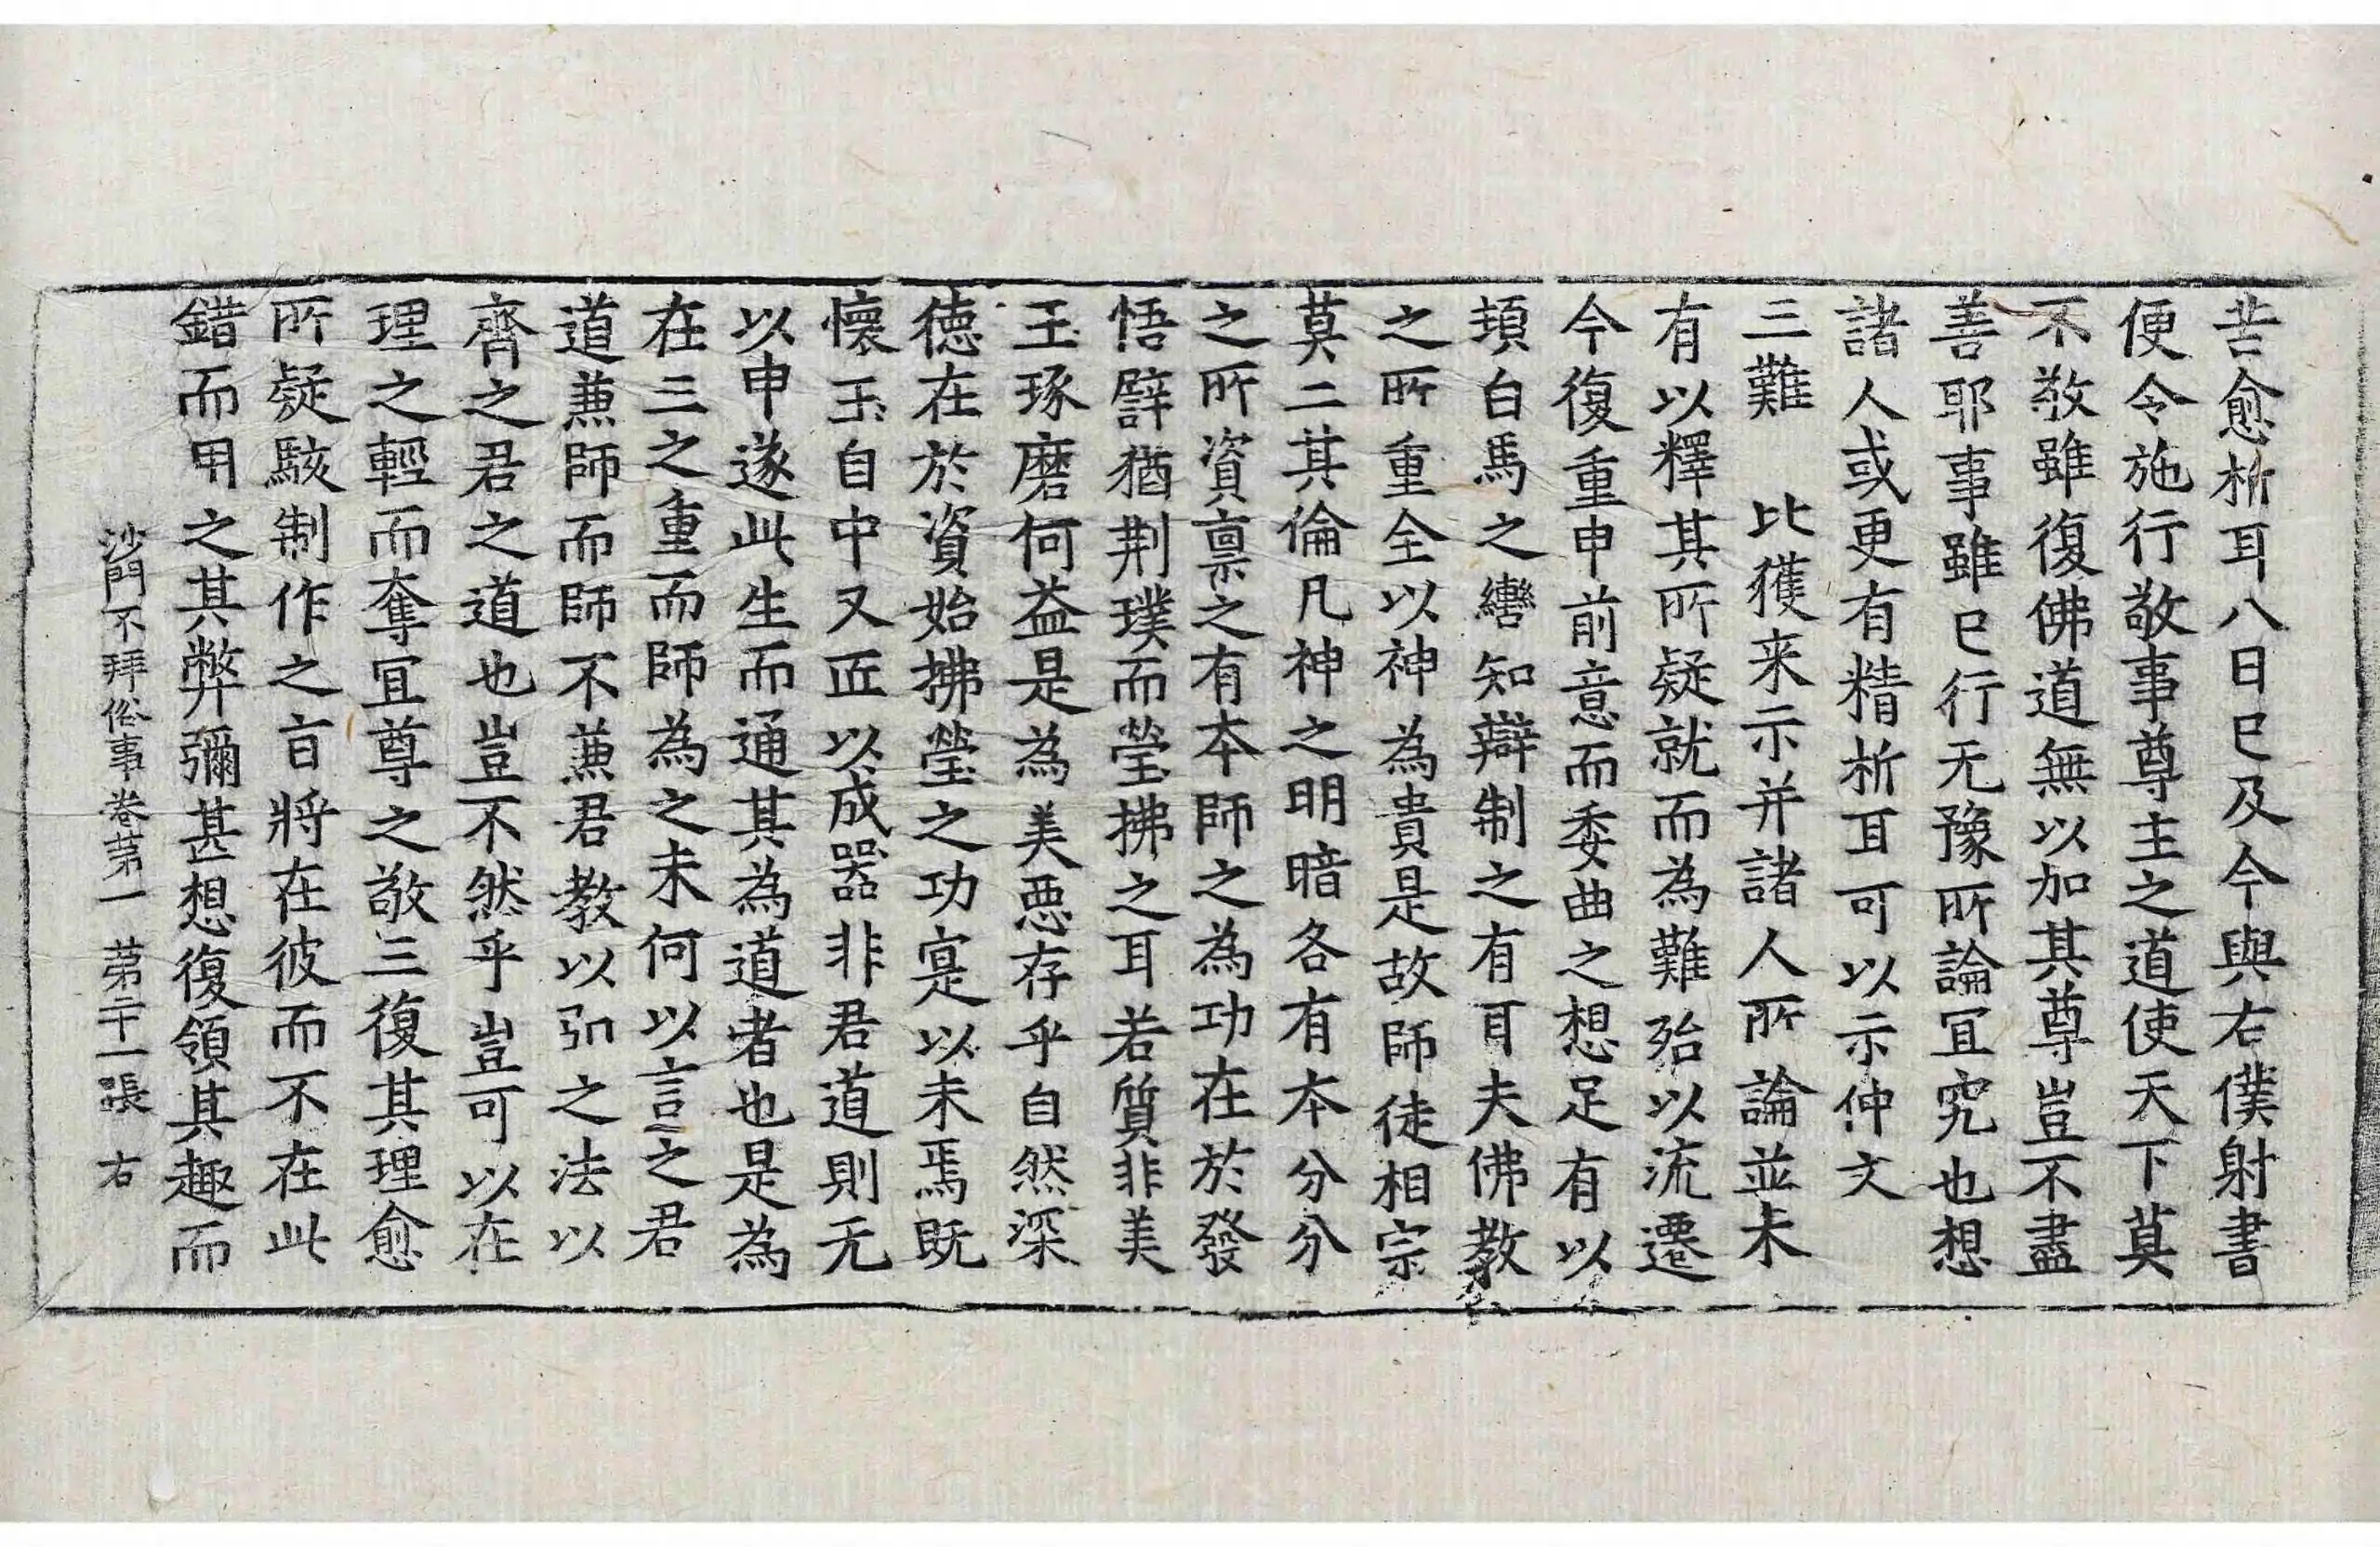 苦愈析耳八日已及今與右僕射書
便令施行敬事尊主之道使天下莫
不敬雖復佛道無以加其尊豈不盡
善耶事雖已行无豫所論宜究也想
諸人或更有精析耳可以示仲文
三難 比獲来示并諸人所論並未
有以釋其所疑就而為難殆以流遷
今復重申前意而委曲之想足有以
頊白馬之轡知辯制之有耳夫佛教
之所重全以神為貴是故師徒相宗
莫二其倫凡神之明暗各有本分分
之所資禀之有本師之為功在於發
悟譬猶荆璞而瑩拂之耳若質非美
玉琢磨何益是為美悪存乎自然深
徳在於資始拂瑩之功寔以未焉既
懷玉自中又匠以成器非君道則无
以申遂此生而通其為道者也是為
在三之重而師為之未何以言之君
道兼師而師不兼君教以弘之法以
齊之君之道也豈不然乎豈可以在
理之輕而奪冝尊之敬三復其理愈
所疑駭制作之㫖將在彼而不在此
錯而用之其弊彌甚想復領其趣而
沙門不拜俗事卷苐一 苐二十一張 右